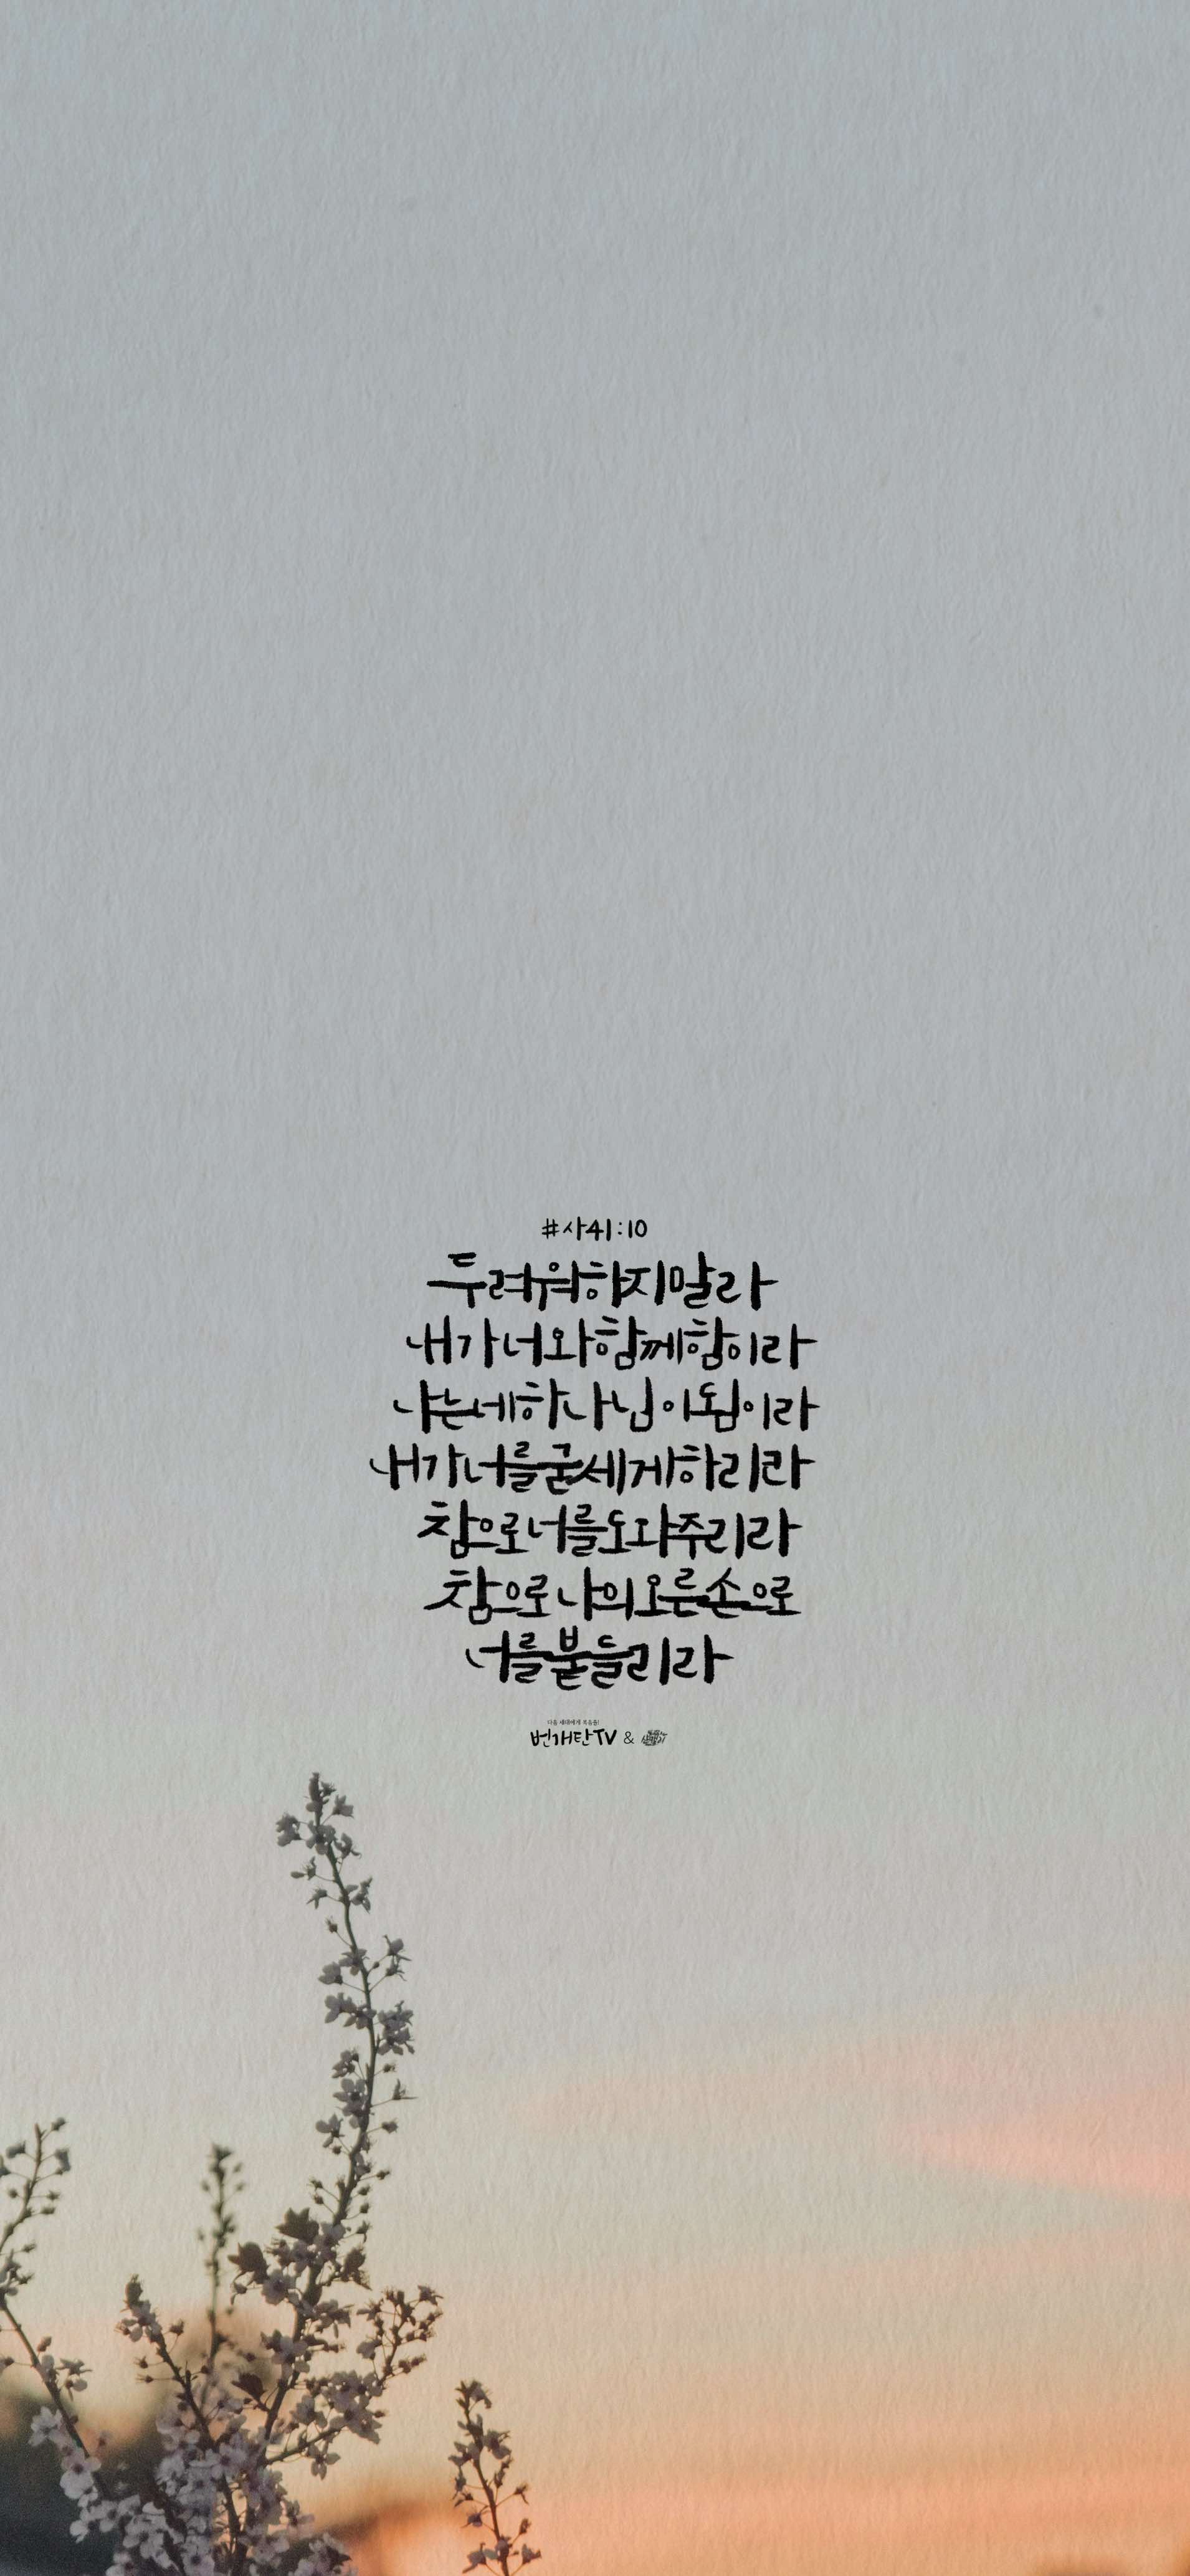 #사41:10
두려워하지말라
내가너와함께함이라
나는네하나님이됨이라
내가너를굳세게하리라
참으로너를도와주리라
참으로나의오른손으로
너를붙들리라
다음 세대에게 복음을!
번개탄TV &